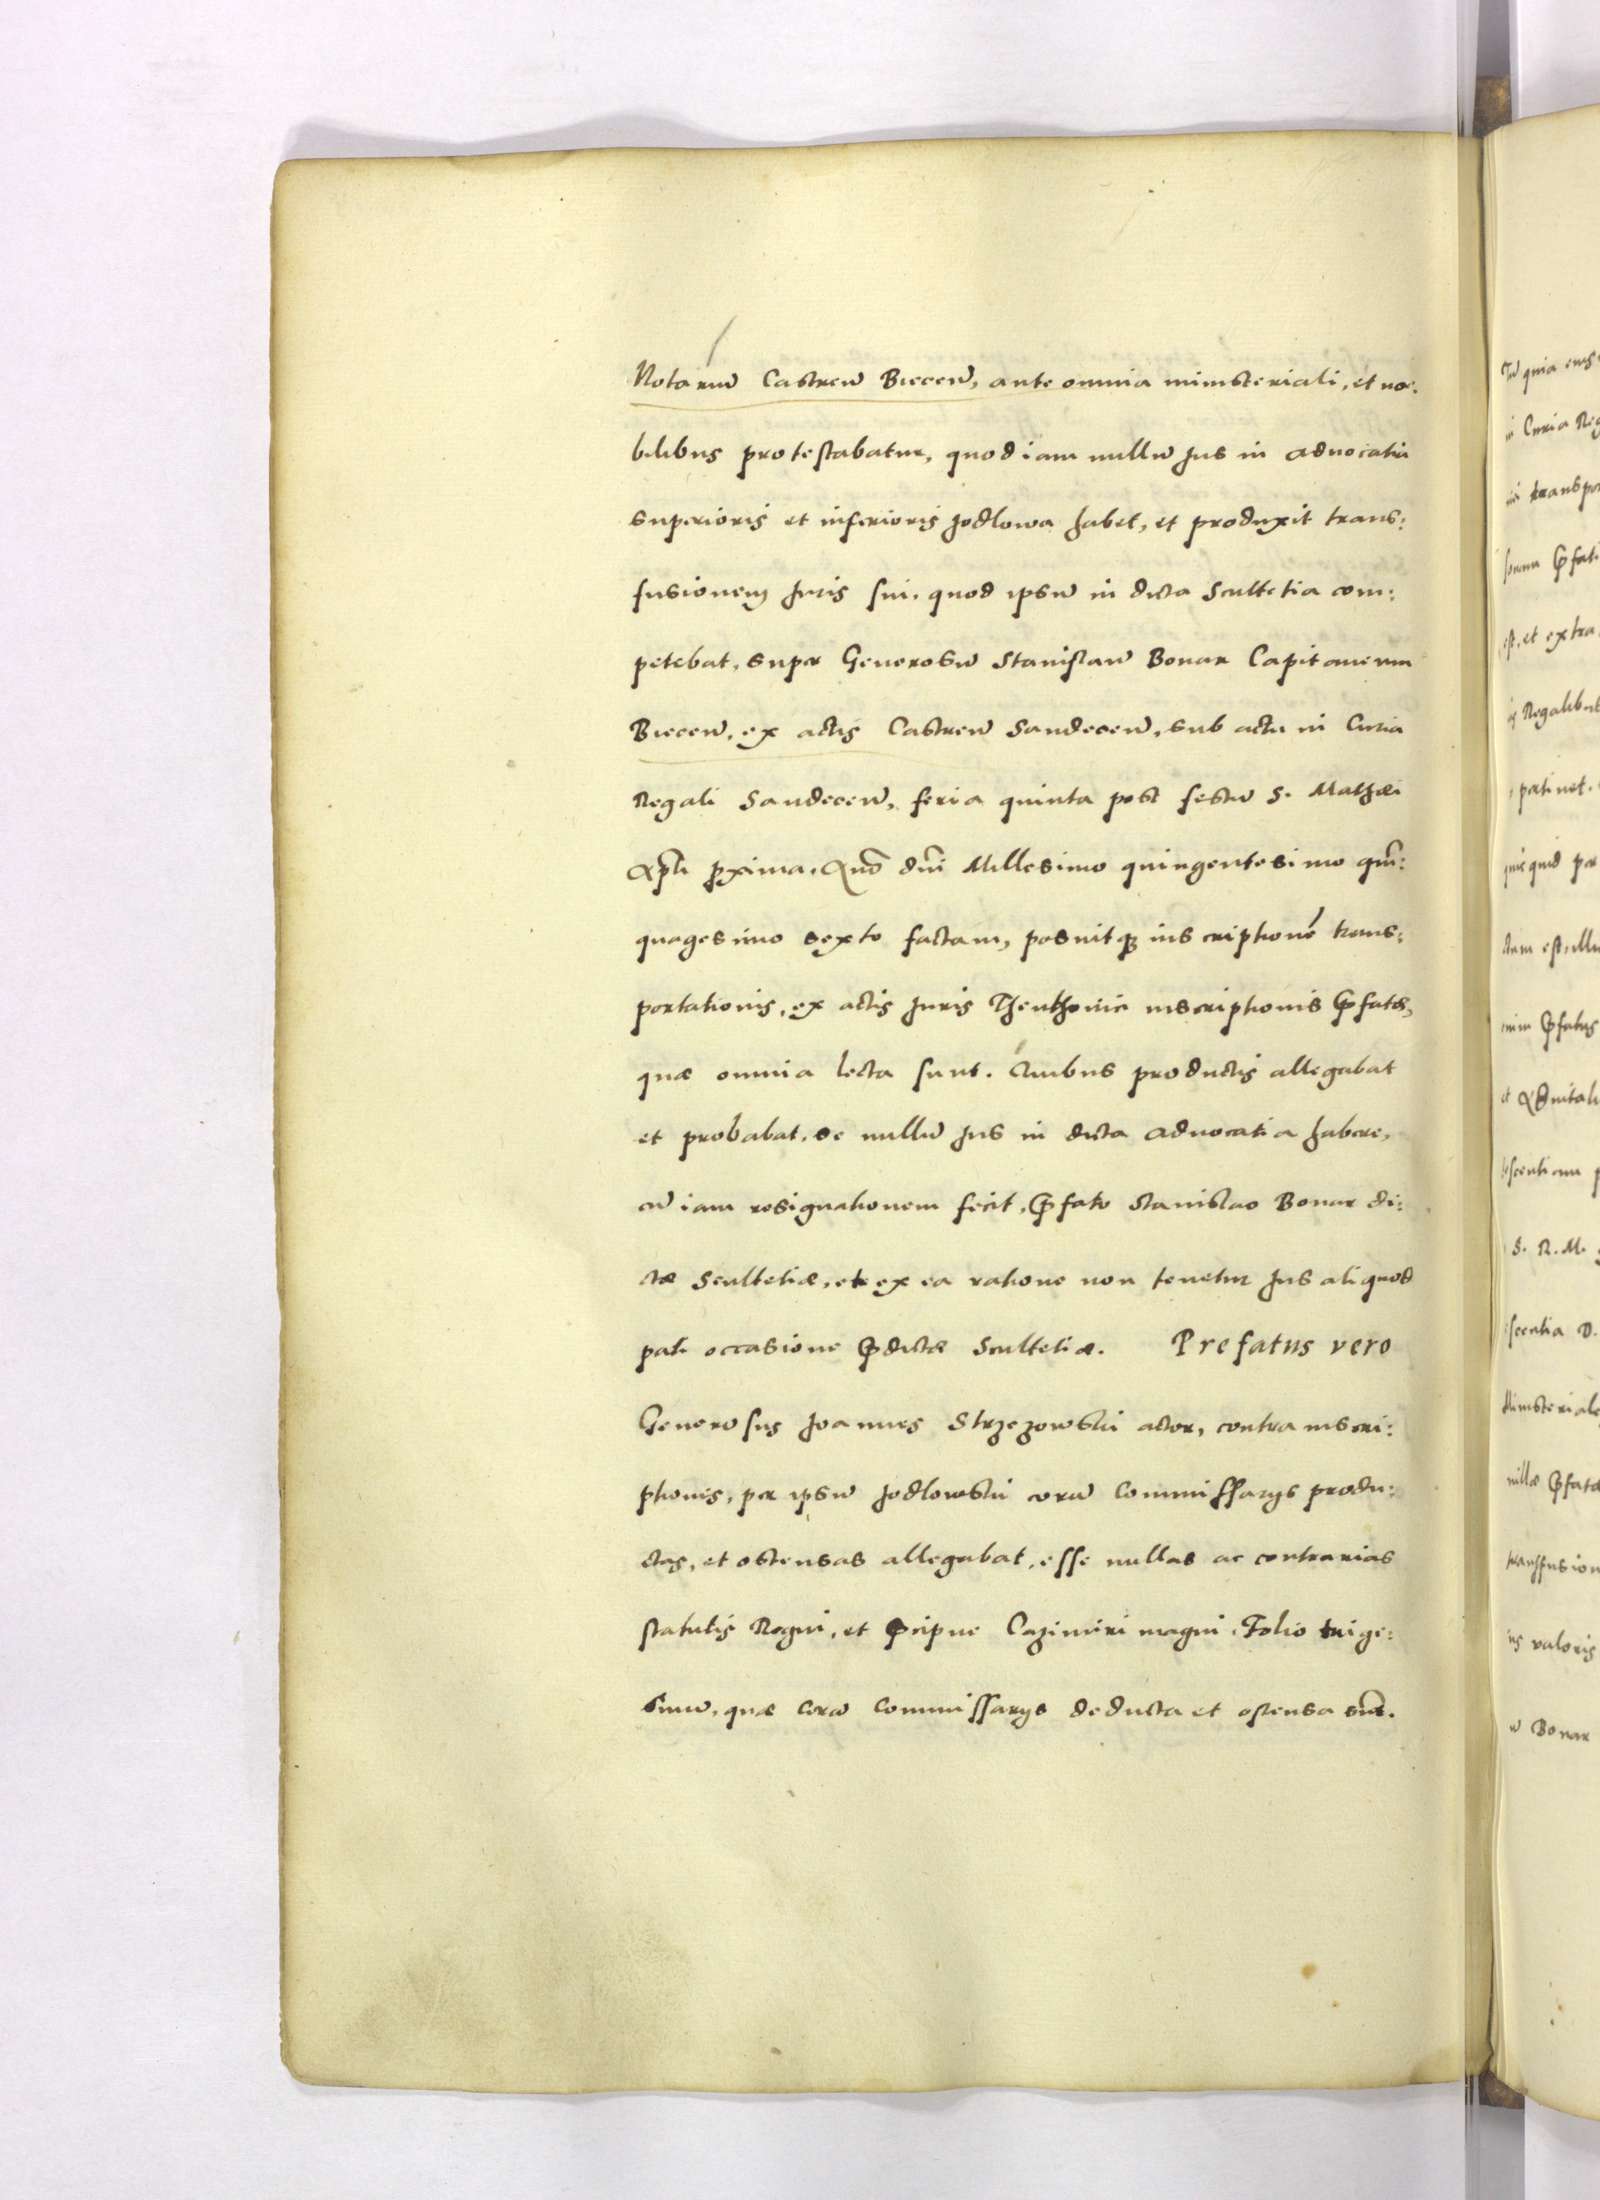 Notariu͞ Castren͞ Biecen͞, ante omnia ministeriali, et no:
bilibus protestabatur, quod iam nullu͞ Jus in advocatia
superioris et inferioris Jodlowa habet, et produxit trans:
fusionem Juris sui, quod ipsu͞ in dicta Scultetia com:
petebat, super Generosu͞ Stanislau͞ Bonar Capitaneum
Biecen͞, ex actis Castren͞ Sandecen͞, sub actu in Curia
Regali Sandecen͞, feria quinta post festu͞ S. Mathæi
Ap͞li p͞xima, An͞o dn͞i Millesimo quingentesimo qui͞n:
quagesimo sexto factam, posuitq; inscriptione͞ trans:
portationis, ex actis Juris Theuthonici inscriptionis p͞fatæ,
quæ omnia lecta sunt. Quibus productis allegabat
et probabat, se nullu͞ Jus in dicta advocatia habere,
cu͞ iam resignationem fecit, p͞fato Stanislao Bonar di:
ctæ Scultetiæ, et ex ea ratione non tenetur Jus aliquod
pati occasione p͞dictæ Scultetiæ. Prefatus vero
Generosus Joannes Strzezowski actor, contra inscri:
ptionis, per ipsu͞ Jodlowski cora͞ Commissarys produ:
ctas, et ostensas allegabat, esse nullas ac contrarias
statutis Regni, et p͞cipue Cazimiri magni, Folio trige:
simu͞, quæ cora͞ Commissarys deducta et ostensa su͞nt.
Tu͞ quia eius
in Curia Reg
transpor
p͞fati
est, et extra
Regalibus
pertinet.
quicquid per
p͞fatus
S. R. M.
D.
Ministeriale
p͞fata
transfusion
valoris
Bonar